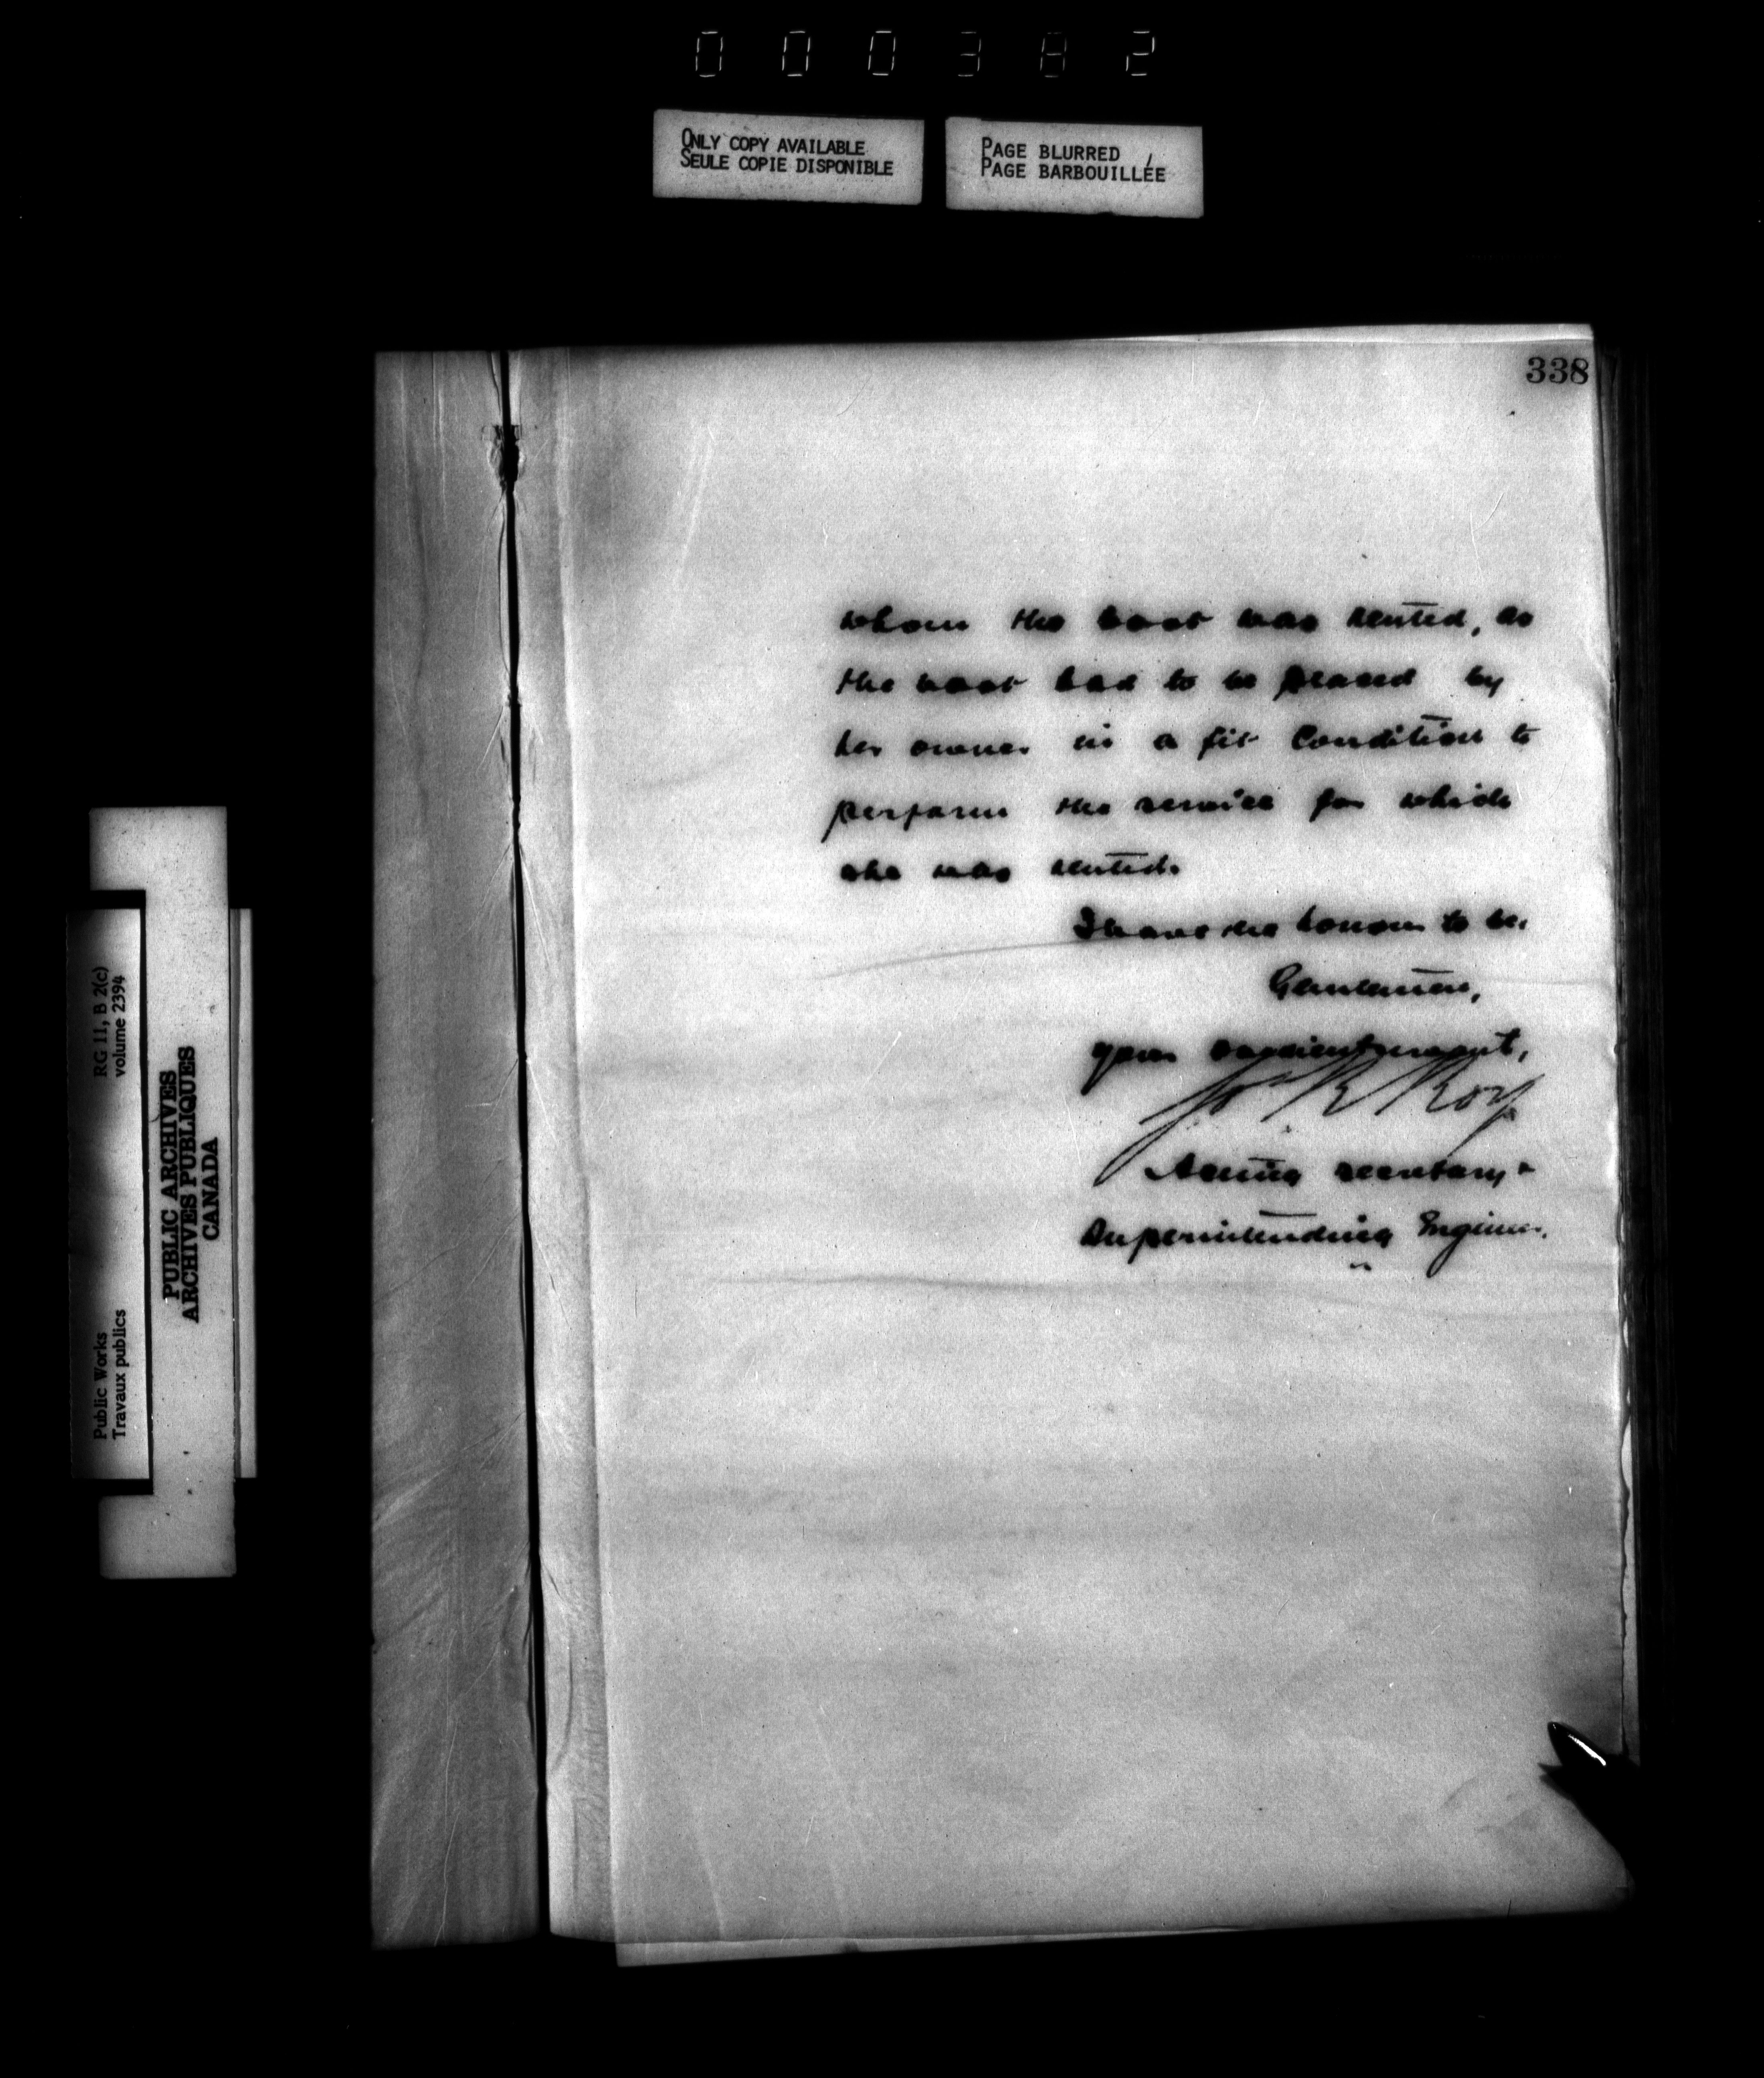 000382
ONLY COPY AVAILABLE
SEULE COPIE DISPONIBLE
PAGE BLURRED
PAGE BARBOUILLÉE
338
whom the boat was rented, as
the boat had to be placed by
her owner in a fit condition to
perform the service for which
she was rented.
I have the honour to be,
Gentlemen,
your obedient servant,
R Roy
Acting Secretary &
Superintending Engineer.
RG 11, B 2(c)
volume 2394
Public Works
Travaux publics
PUBLIC ARCHIVES
ARCHIVES PUBLIQUES
CANADA